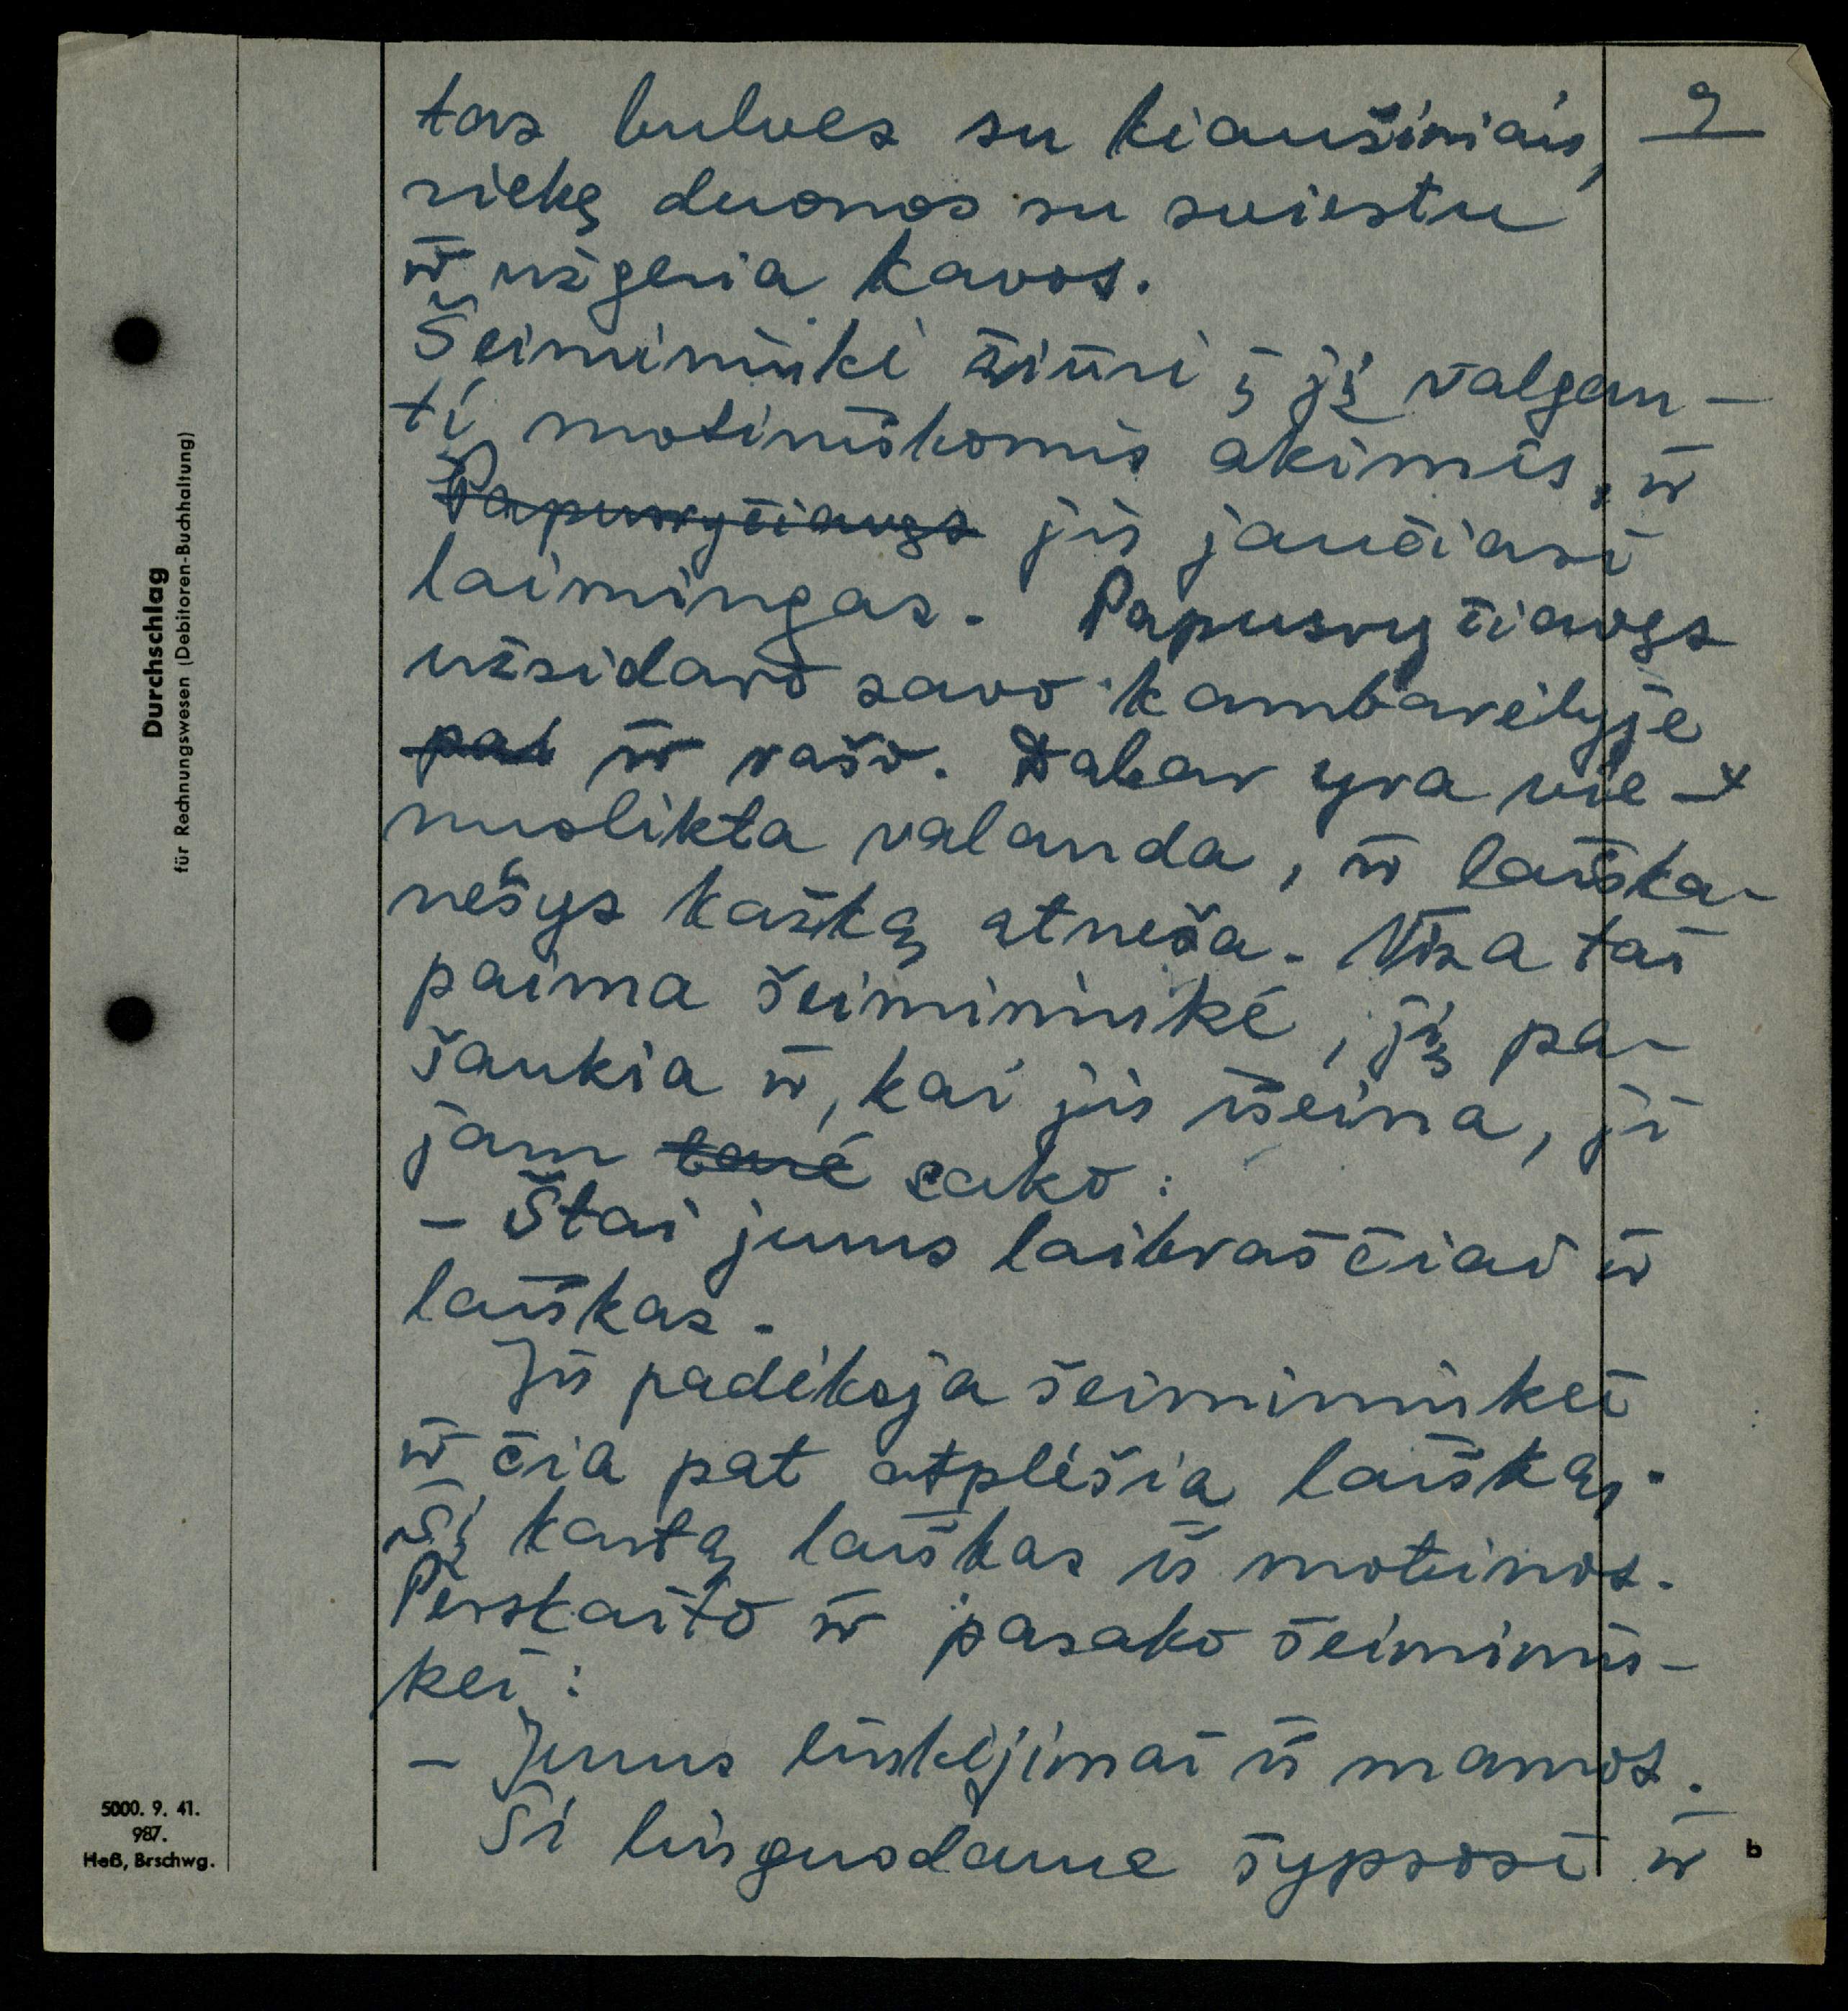 9
tas bulves su kiaušiniais,
riekę duonos su sviestu
ir užgeria kavos.
Šeimininkė žiūri į jį valgan-
tį motiniškomis akimis, ir
Papusryčiavęs jis jaučiasi
laimingas. Papusryčiavęs
užsidaro savo kambarėlyje
pat ir rašo. Dabar yra vie-
nuolikta valanda, ir laiška-
nešys kažką atneša. Visa tai
paima šeimininkė, jį pa-
šaukia ir, kai jis išeina, ji
jam tarė sako:
- Štai jums laikraščiai ir
laiškas.
Jis padėkoja šeimininkei
ir čia pat atplėšia laišką.
Šį kartą laiškas iš motinos.
Perskaito ir pasako šeiminin-
kei:
- Jums linkėjimai iš mamos.
Ši linguodama šypsosi ir
Durchschlag
für Rechnungswesen (Debitoren-Buchhaltung)
5000. 9. 41.
987.
Heß, Brschwg.
b